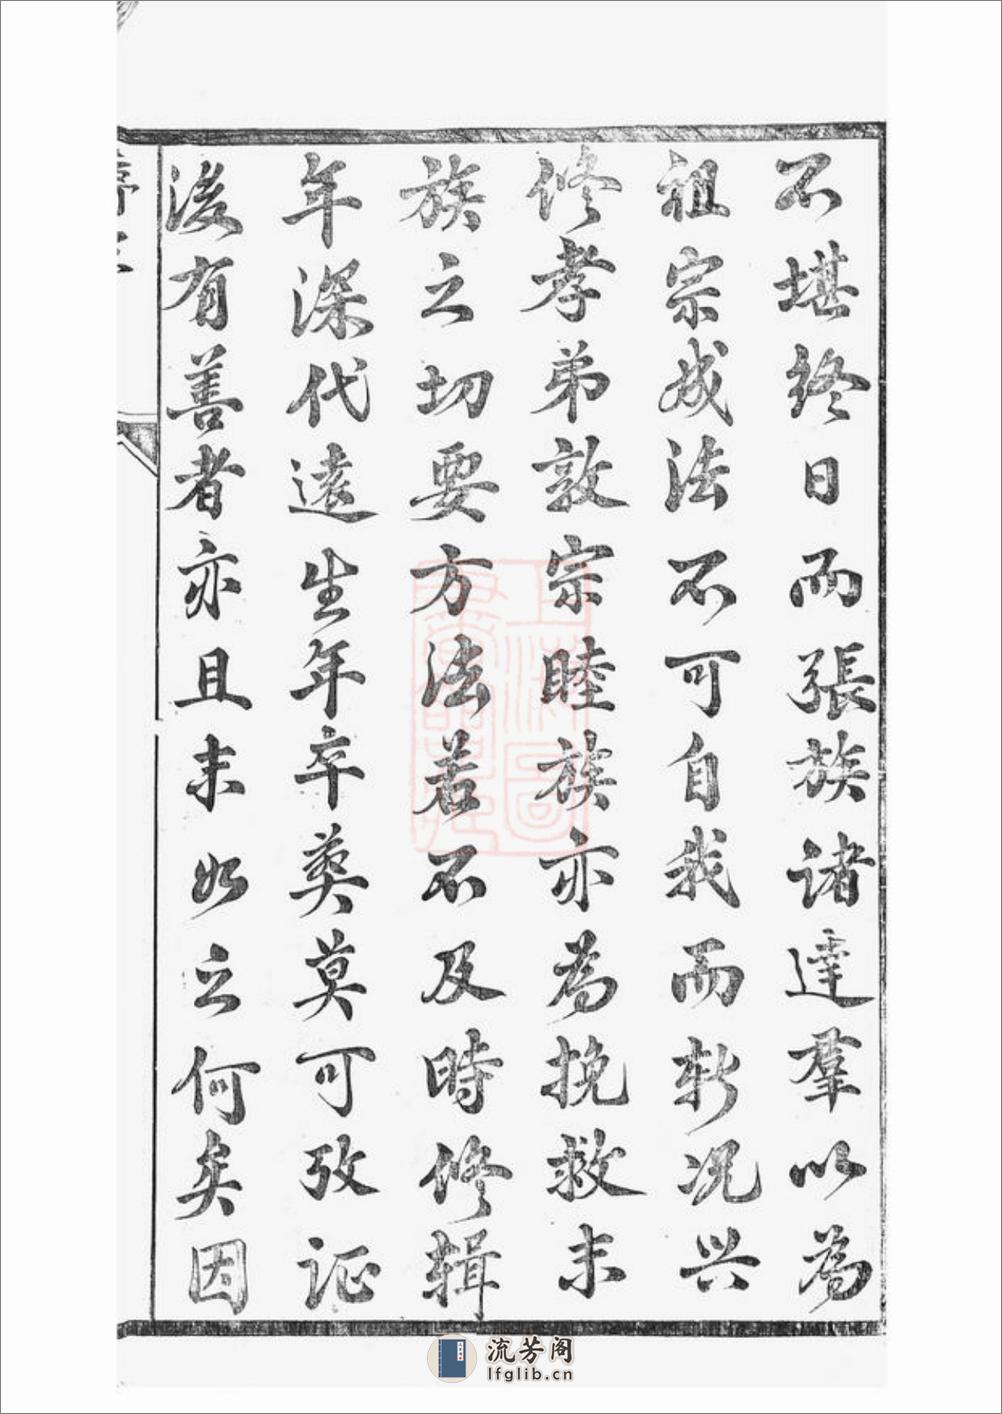 不堪終日而張族諸達羣以為
祖宗成法不可自我而斬况兴
修孝弟敦宗睦族亦為挽救末
族之切要方法若不及時修辑
年深代遠生年卒葬莫可攷証
後有善者亦且末如之何矣因
流芳阁
lfglib.cn